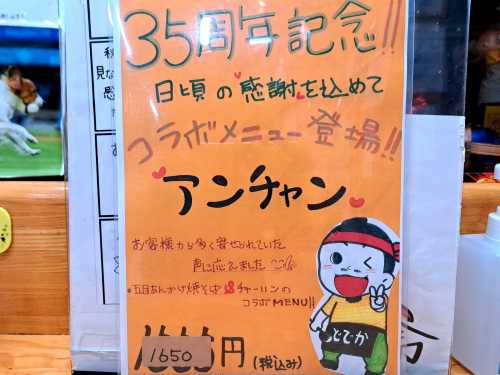 35周年記念!!
日頃の感謝を込めて
コラボメニュー登場!!
アンチャン
お客様から多く寄せられていた
声に応えました
・五目あんかけ焼そば&チャーハンの
コラボMENU!!
1650円(税込み)
とてか